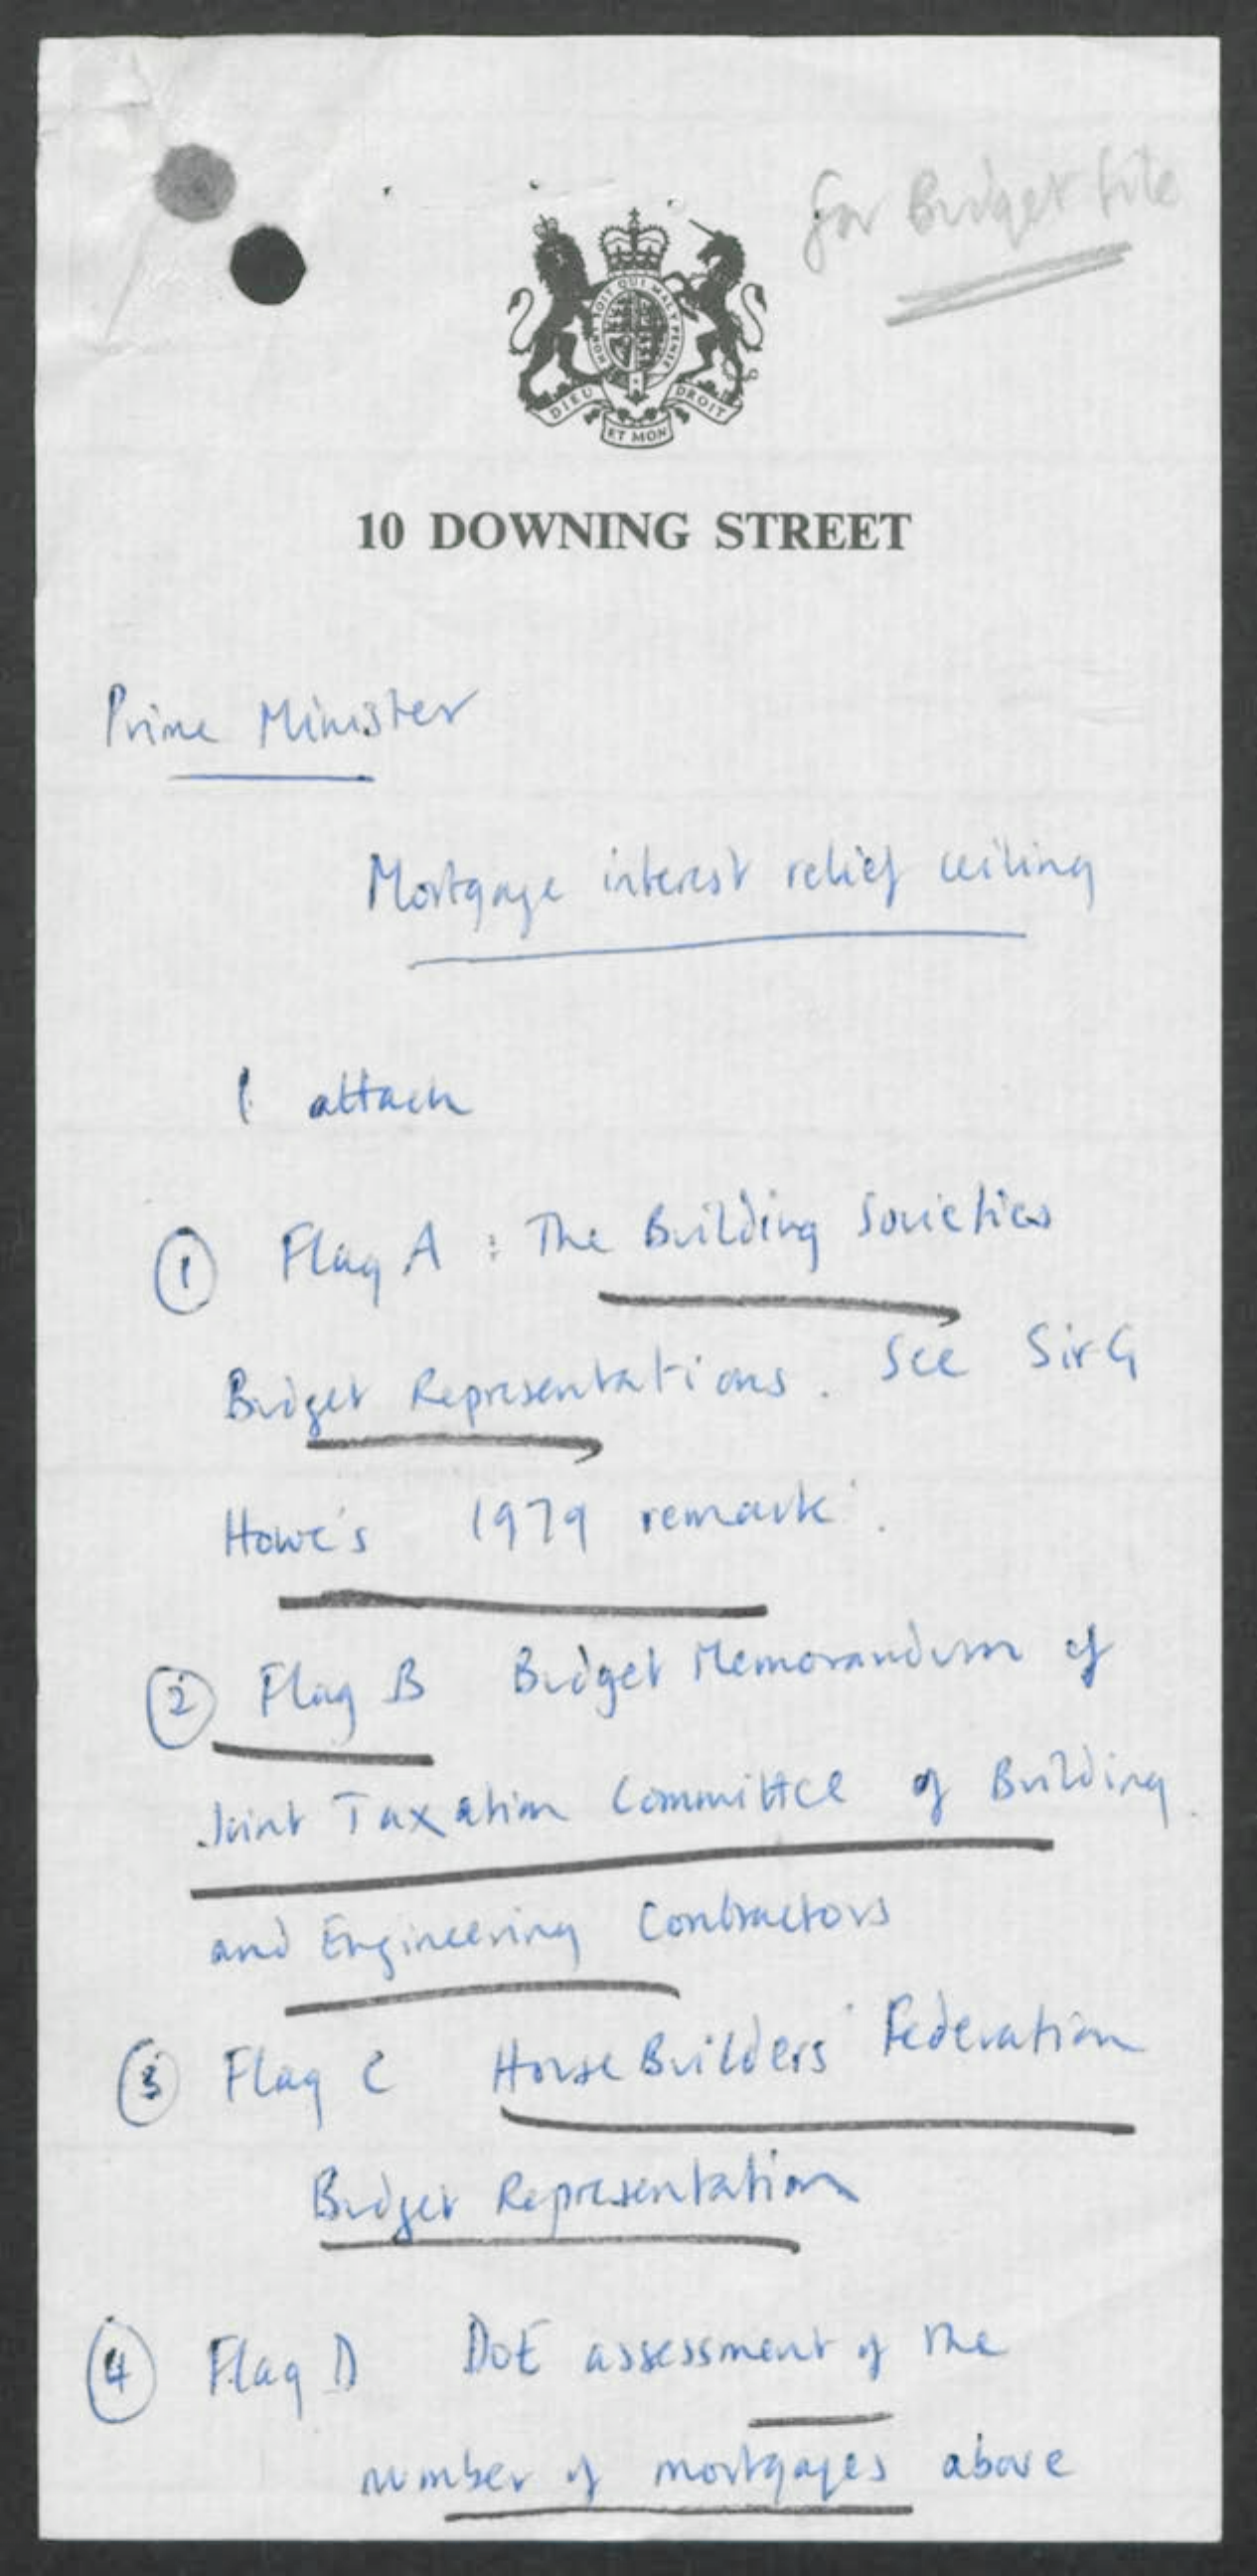 for Budget file
HONI SOIT QUI MAL Y PENSE
DIEU ET MON DROIT
10 DOWNING STREET
Prime Minister
Mortgage interest relief ceiling
I attach
① Flag A : The Building Societies
Budget Representations. See Sir G
Howe's 1979 remark.
② Flag B Budget Memorandum of
Joint Taxation Committee of Building
and Engineering Contractors
③ Flag C House Builders' Federation
Budget Representation
④ Flag D DoE assessment of the
number of mortgages above